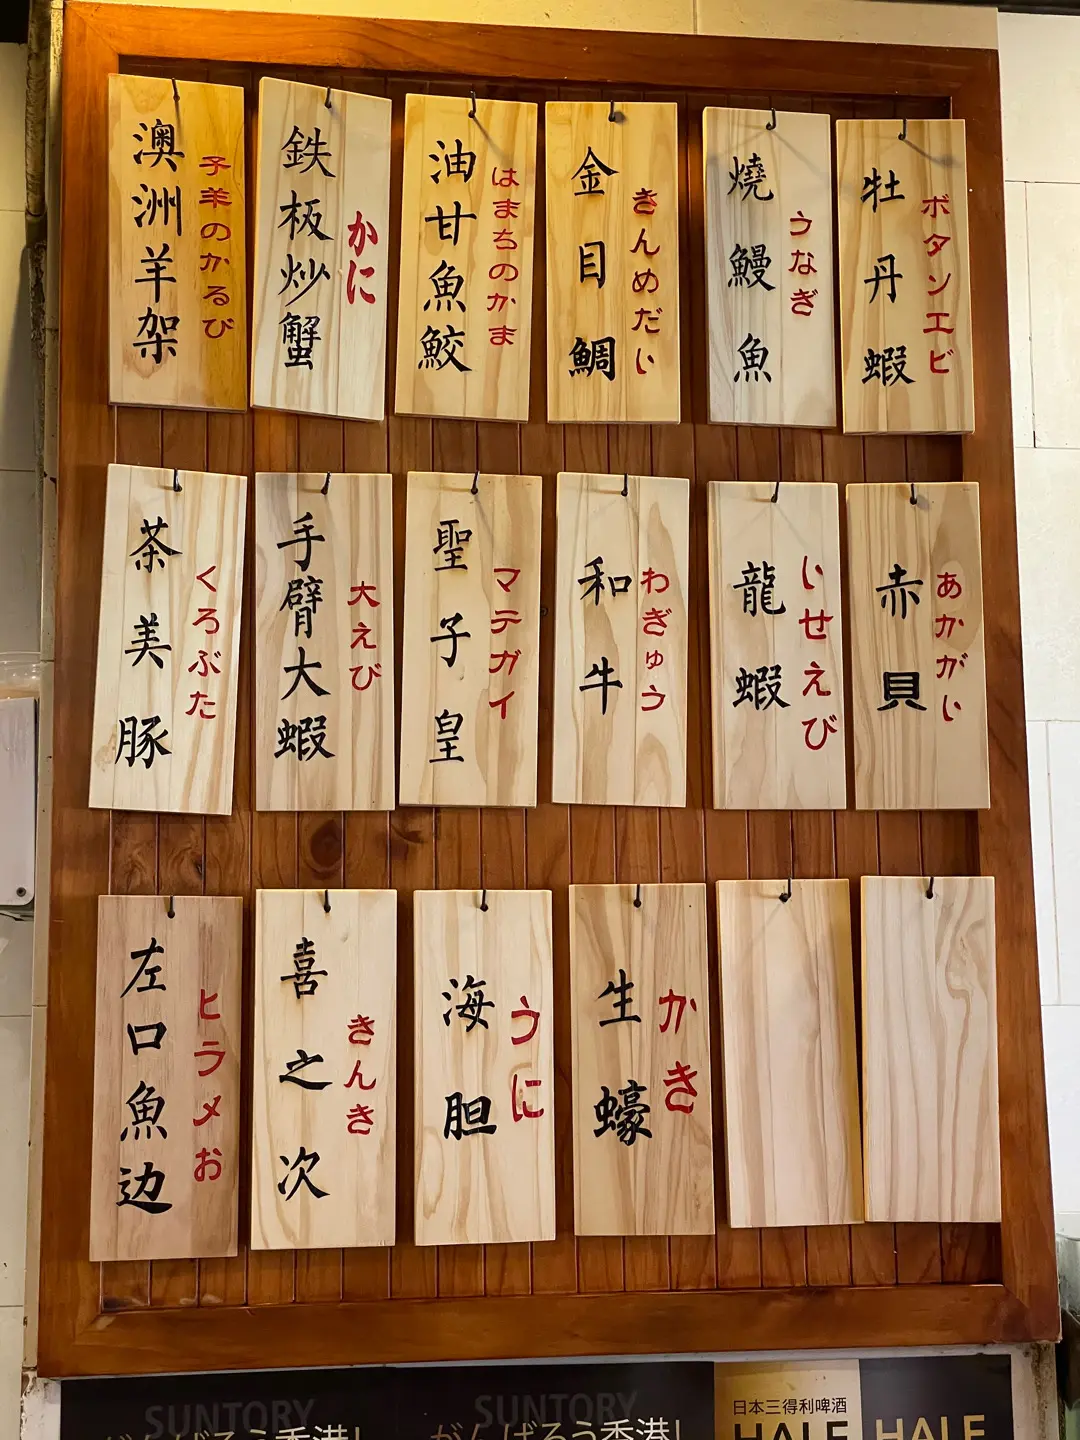 澳洲羊架
子羊のかるび
鉄板炒蟹
かに
油甘魚鮫
はまちのかま
金目鯛
きんめだい
燒鰻魚
うなぎ
牡丹蝦
ボタンエビ
茶美豚
くろぶた
手臂大蝦
大えび
聖子皇
マテガイ
和牛
わぎゅう
龍蝦
いせえび
赤貝
あかがい
左口魚边
ヒラメお
喜之次
きんき
海胆
うに
生蠔
かき
SUNTORY
がんばろう香港!
SUNTORY
がんばろう香港!
日本三得利啤酒
HALF
HALF